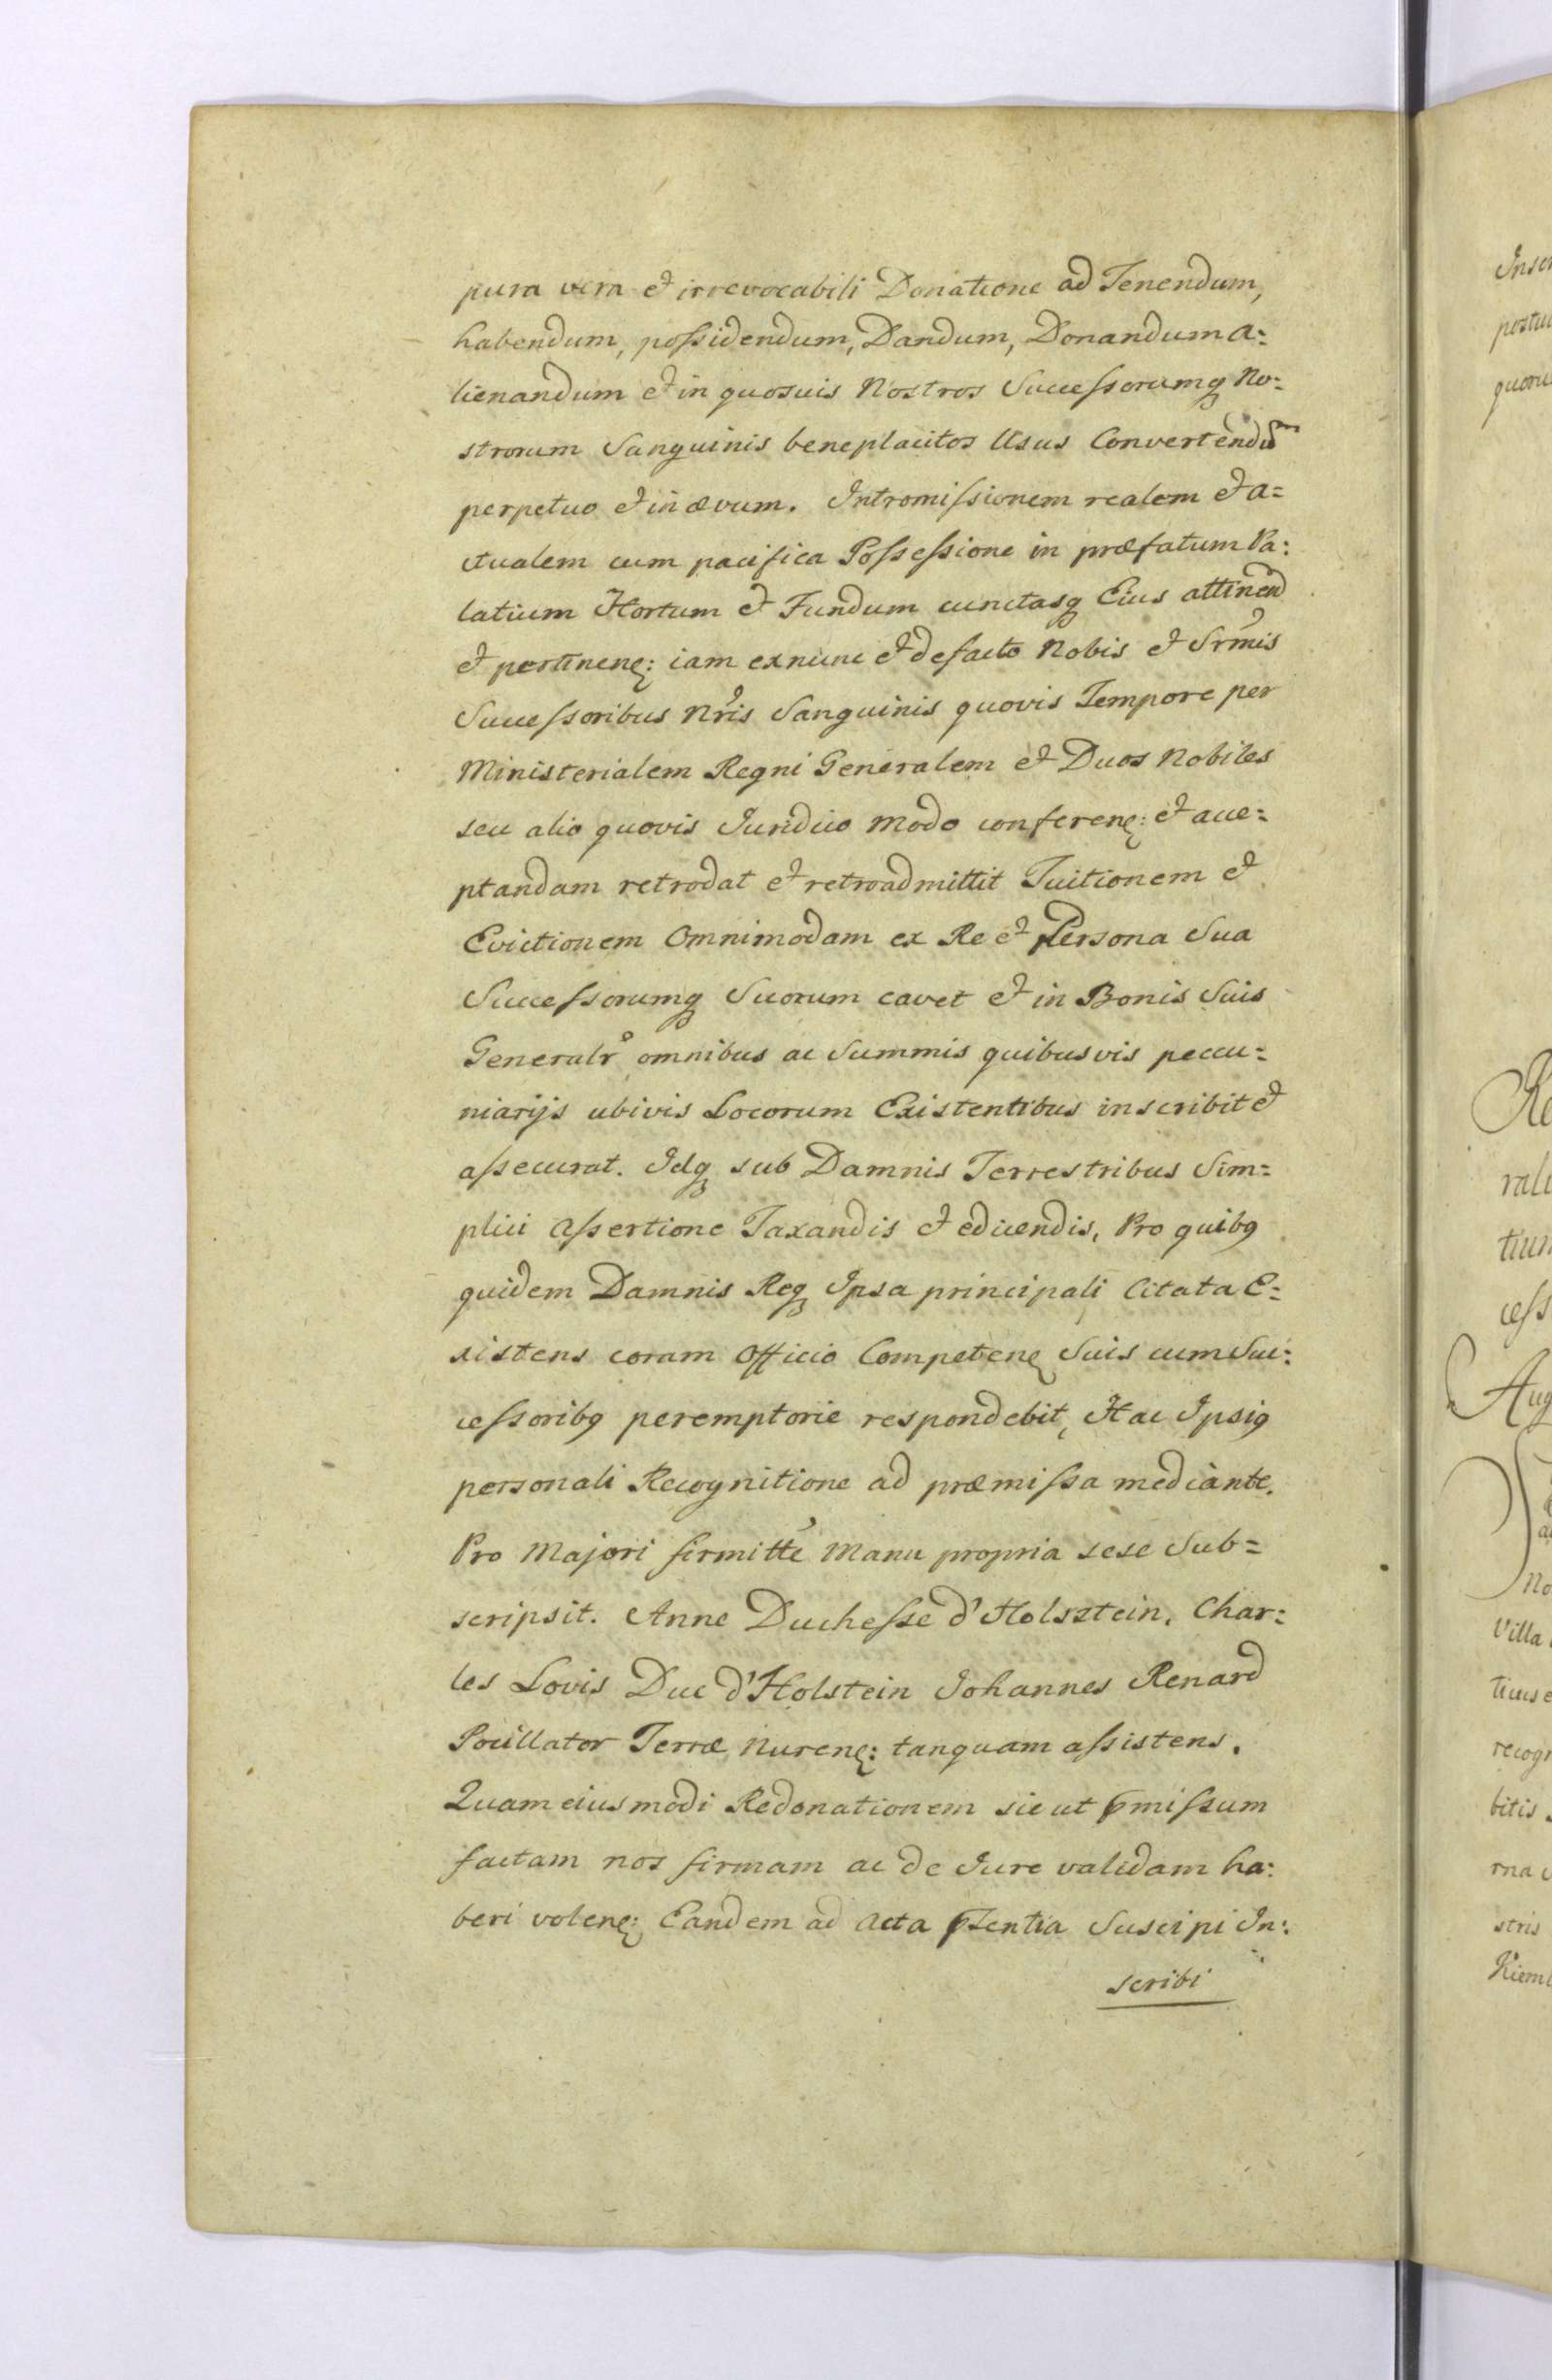 pura vera et irrevocabili Donatione ad Tenendum,
habendum, possidendum, Dandum, Donandum a=
lienandum et in quosuis Nostros Successorumq No=
strorum Sanguinis beneplacitos Usus Convertendũ
perpetuo et in ævum. Intromissionem realem et a=
ctualem cum pacifica Possessione in præfatum Pa=
latium Hortum et Fundum cunctasq Eius attinen
et pertinenę: iam exnunc et de facto Nobis et Srmis
Successoribus Nris Sanguinis quovis Tempore per
Ministerialem Regni Generalem et Duos Nobiles
seu alio quovis Juridico modo conferenę: et acce=
ptandam retrodat et retroadmittit Tuitionem et
Evictionem Omnimodam ex Re et Persona Sua
Successorumq Suorum cavet et in Bonis Suis
Generalr omnibus ac Summis quibusvis peccu=
niarijs ubivis Locorum Existentibus inscribit et
assecurat. Idq sub Damnis Terrestribus Sim=
plici Assertione Taxandis et edicendis, Pro quibꝯ
quidem Damnis Req Ipsa principali Citata E=
xistens coram Officio Competenę Suis cum Suc=
cessoribꝯ peremptorie respondebit, Hac Ipsiꝯ
personali Recognitione ad præmissa mediante.
Pro Majori firmitte Manu propria sese Sub=
scripsit. Anne Duchesse d'Holsztein. Char=
les Lovis Duc d'Holstein Johannes Renard
Pocillator Terræ Nurenę: tanquam assistens.
Quam eiusmodi Redonationem sic ut pmissum
factam nos firmam ac de Jure validam ha=
beri volenę: Eandem ad Acta pſentia Suscipi In=
scribi
rali
tium
cess
Aug
Villa
recogn
bitis
stris